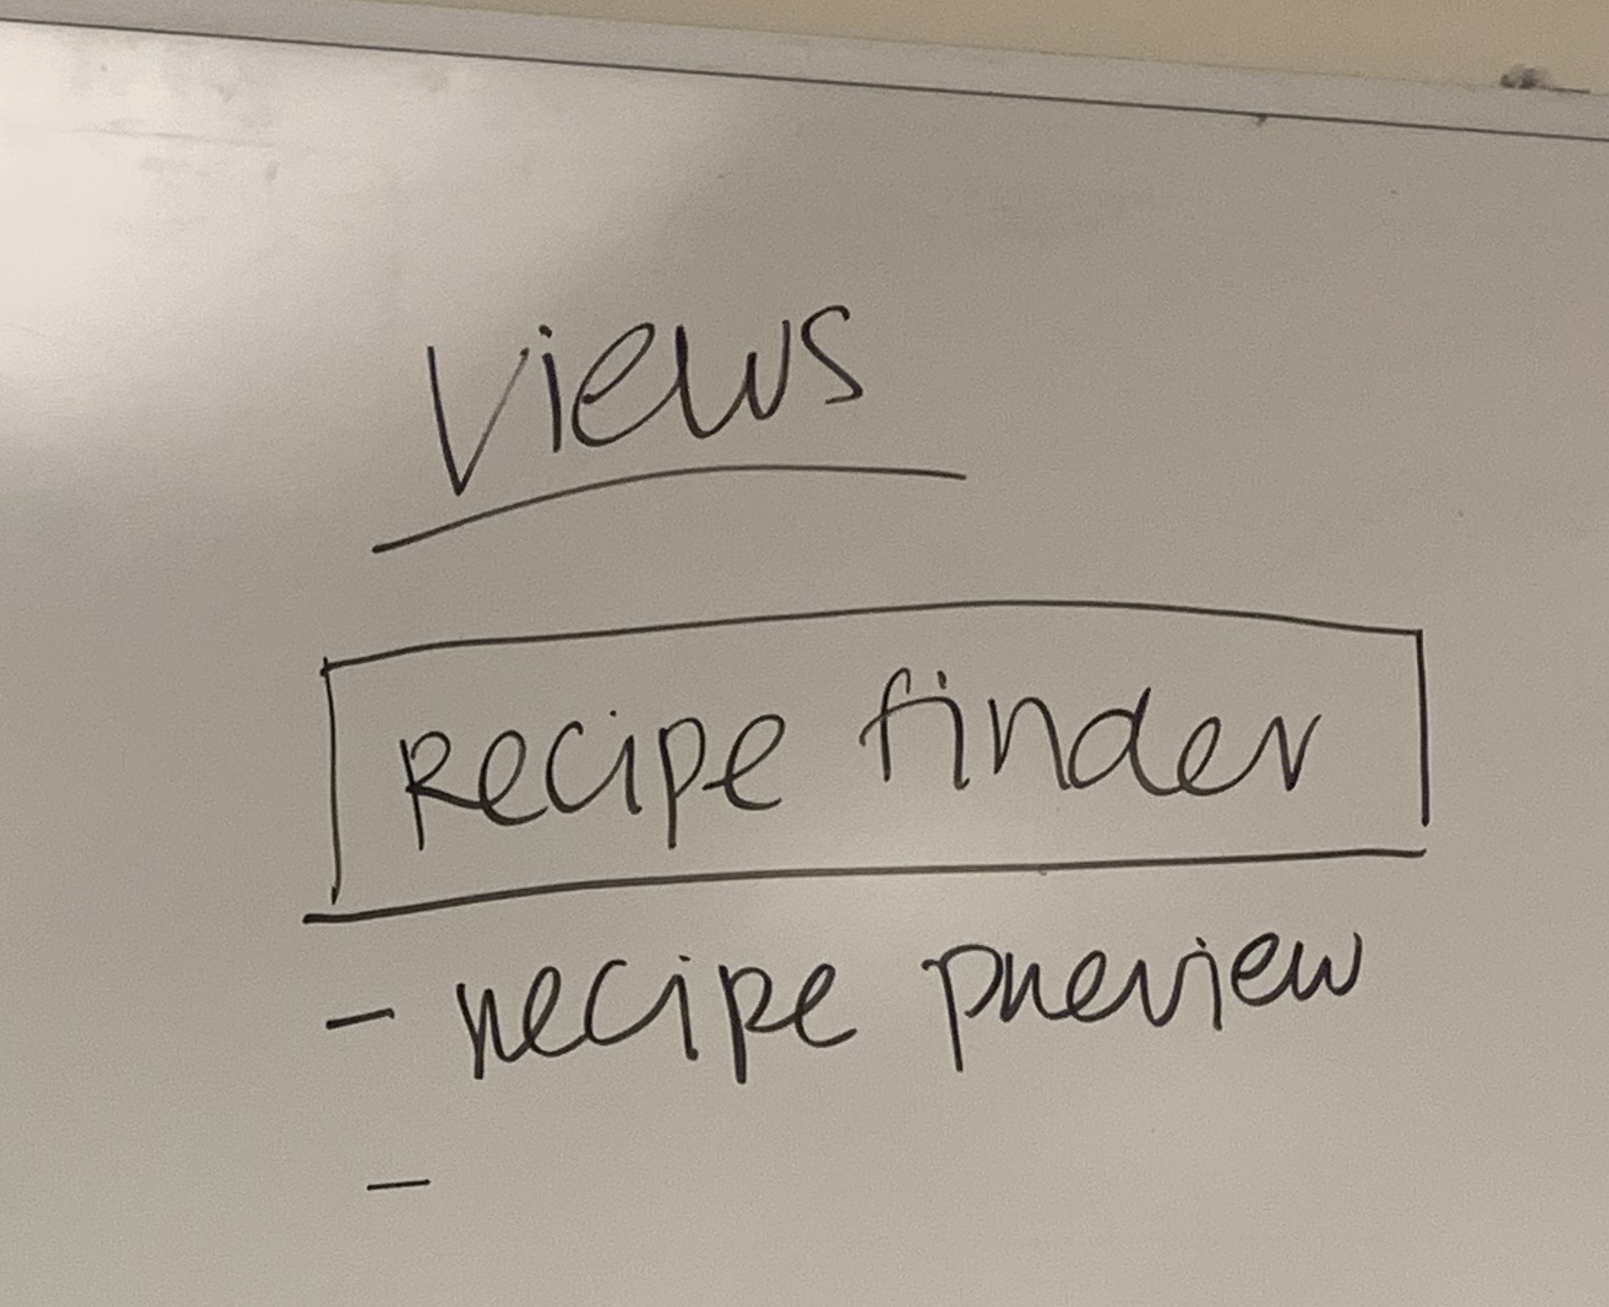 Views
Recipe finder
- recipe preview
-